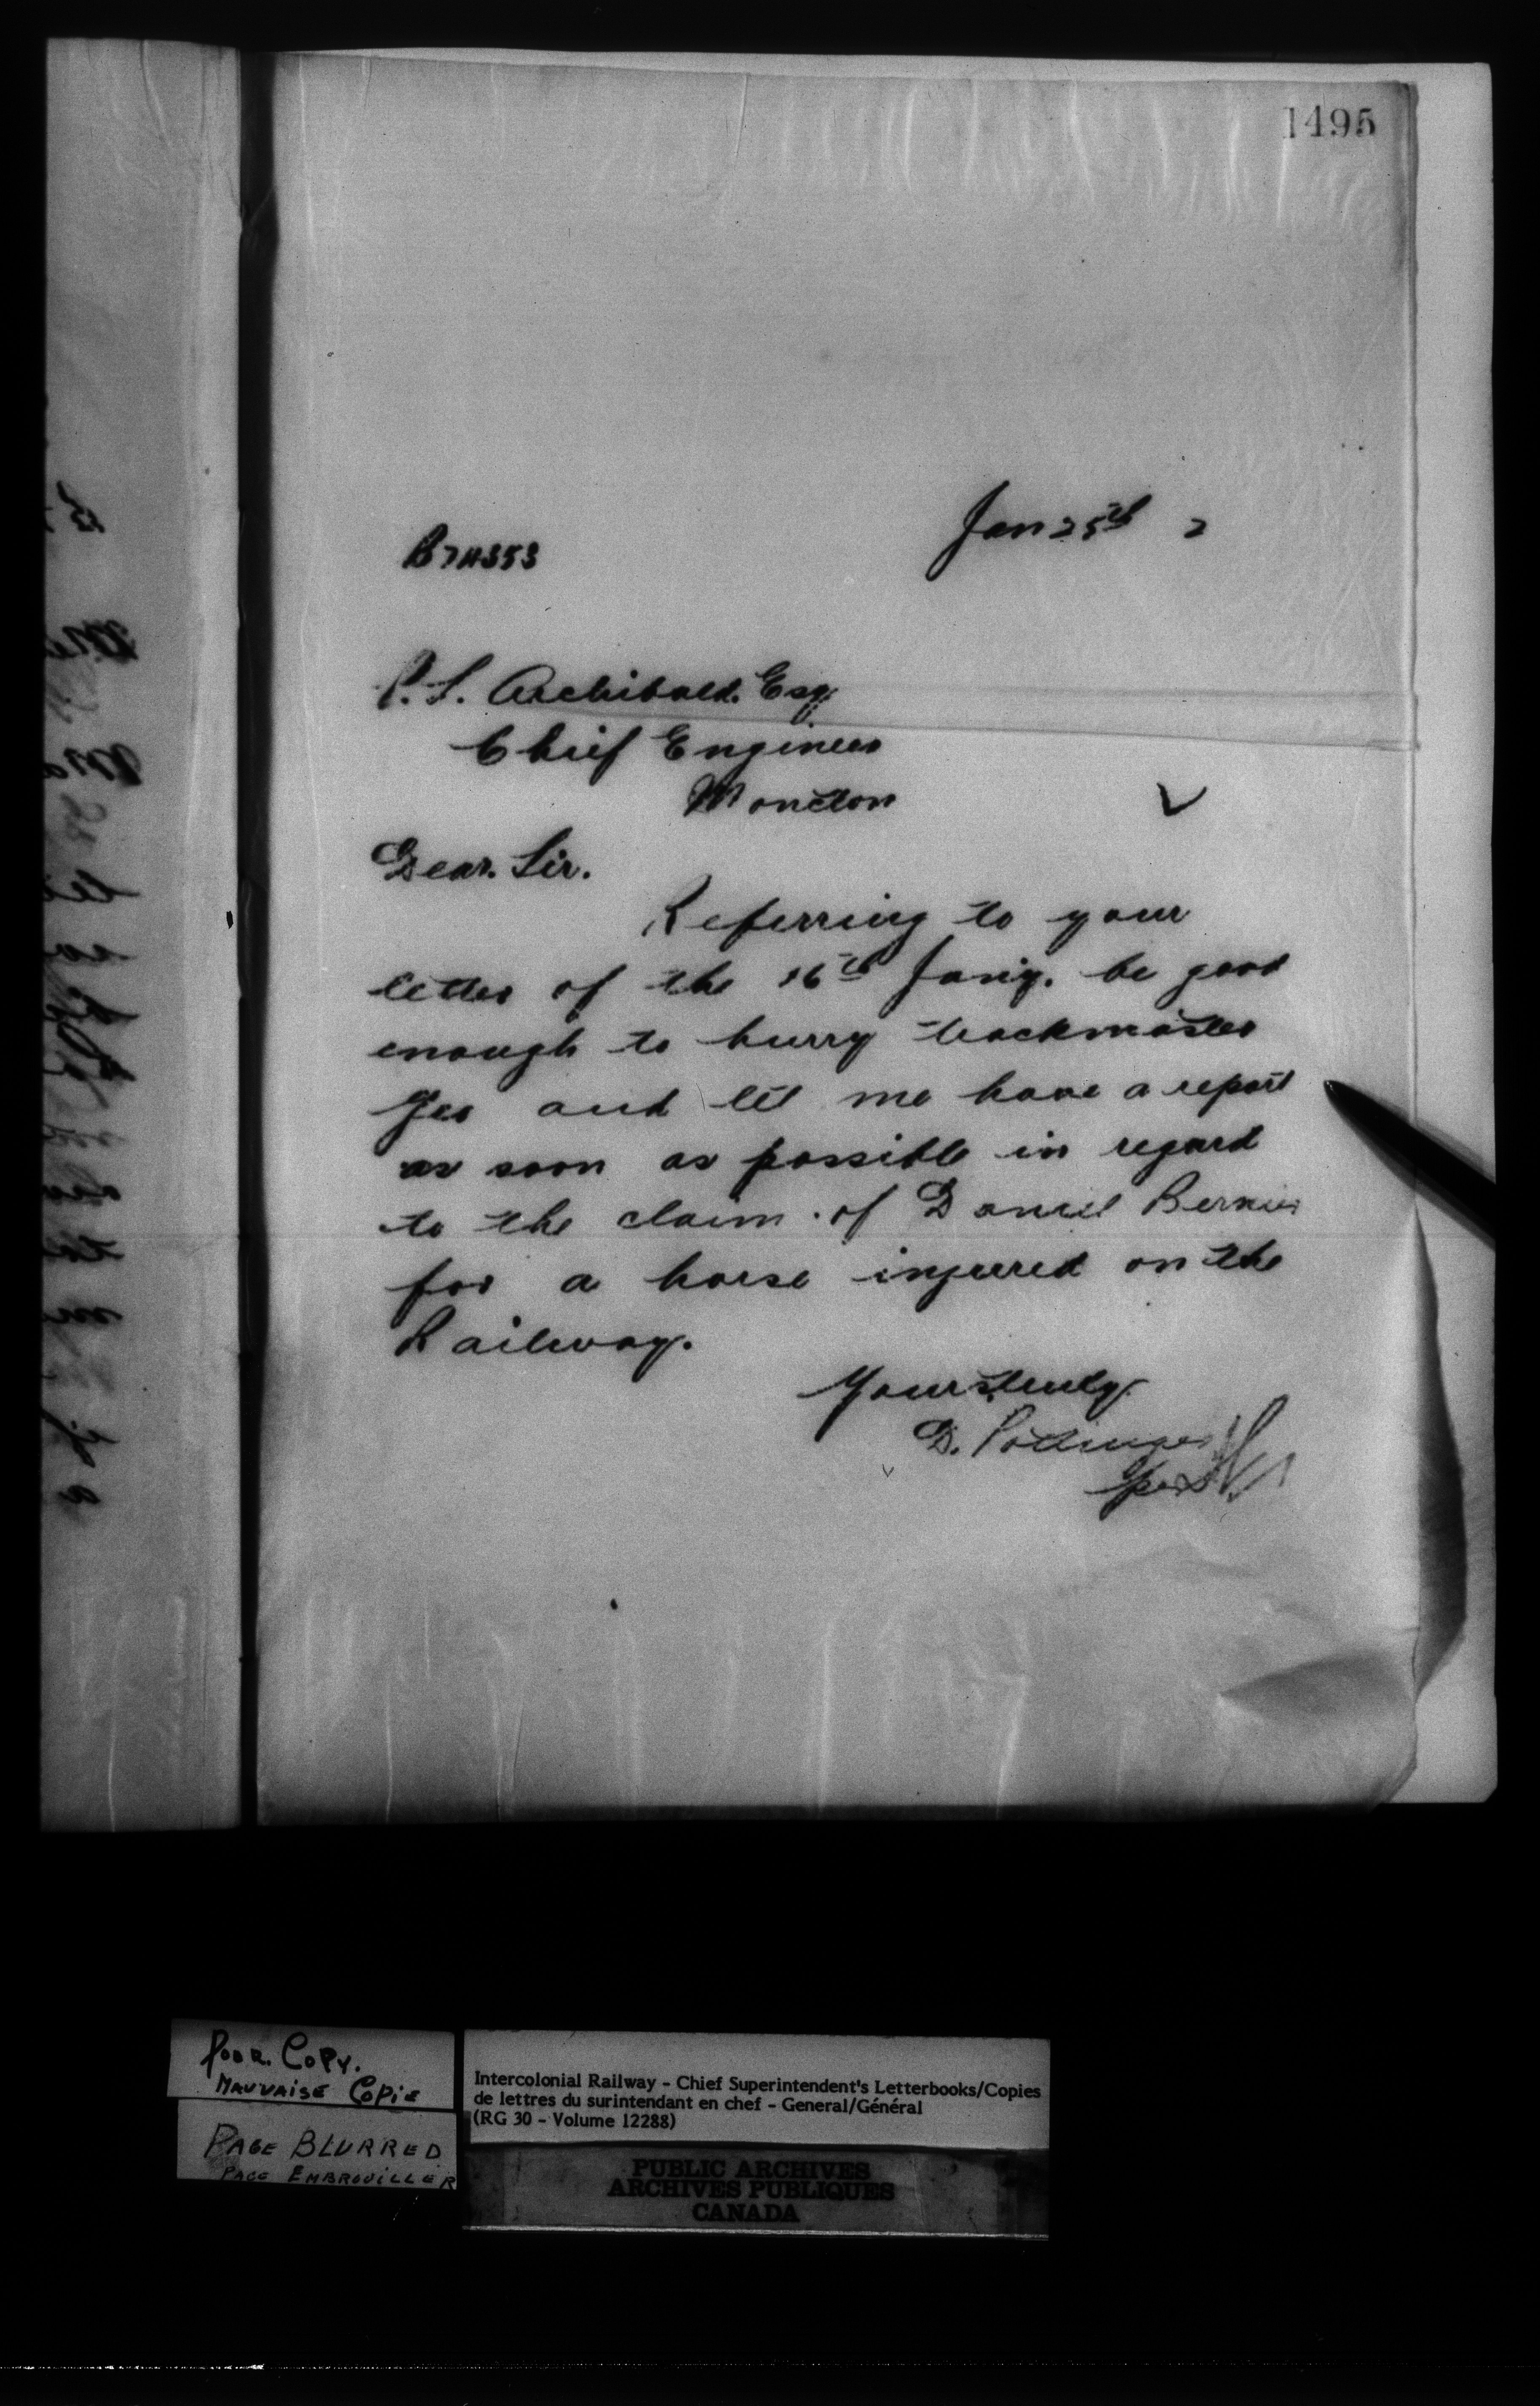 1495
Jan 25th 2
B74353
P. S. Archibald. Esq.
Chief Engineer
Moncton
Dear. Sir.
Referring to your
letter of the 16th Jany. be good
enough to hurry trackmaster
Yeo and let me have a report
as soon as possible in regard
to the claim of Daniel Bernier
for a horse injured on the
Railway.
Yours truly.
D. Pottinger
per
POOR. COPY.
MAUVAISE COPIE
PAGE BLURRED
PAGE EMBROUILLER
Intercolonial Railway - Chief Superintendent's Letterbooks/Copies
de lettres du surintendant en chef - General/Général
(RG 30 - Volume 12288)
PUBLIC ARCHIVES
ARCHIVES PUBLIQUES
CANADA